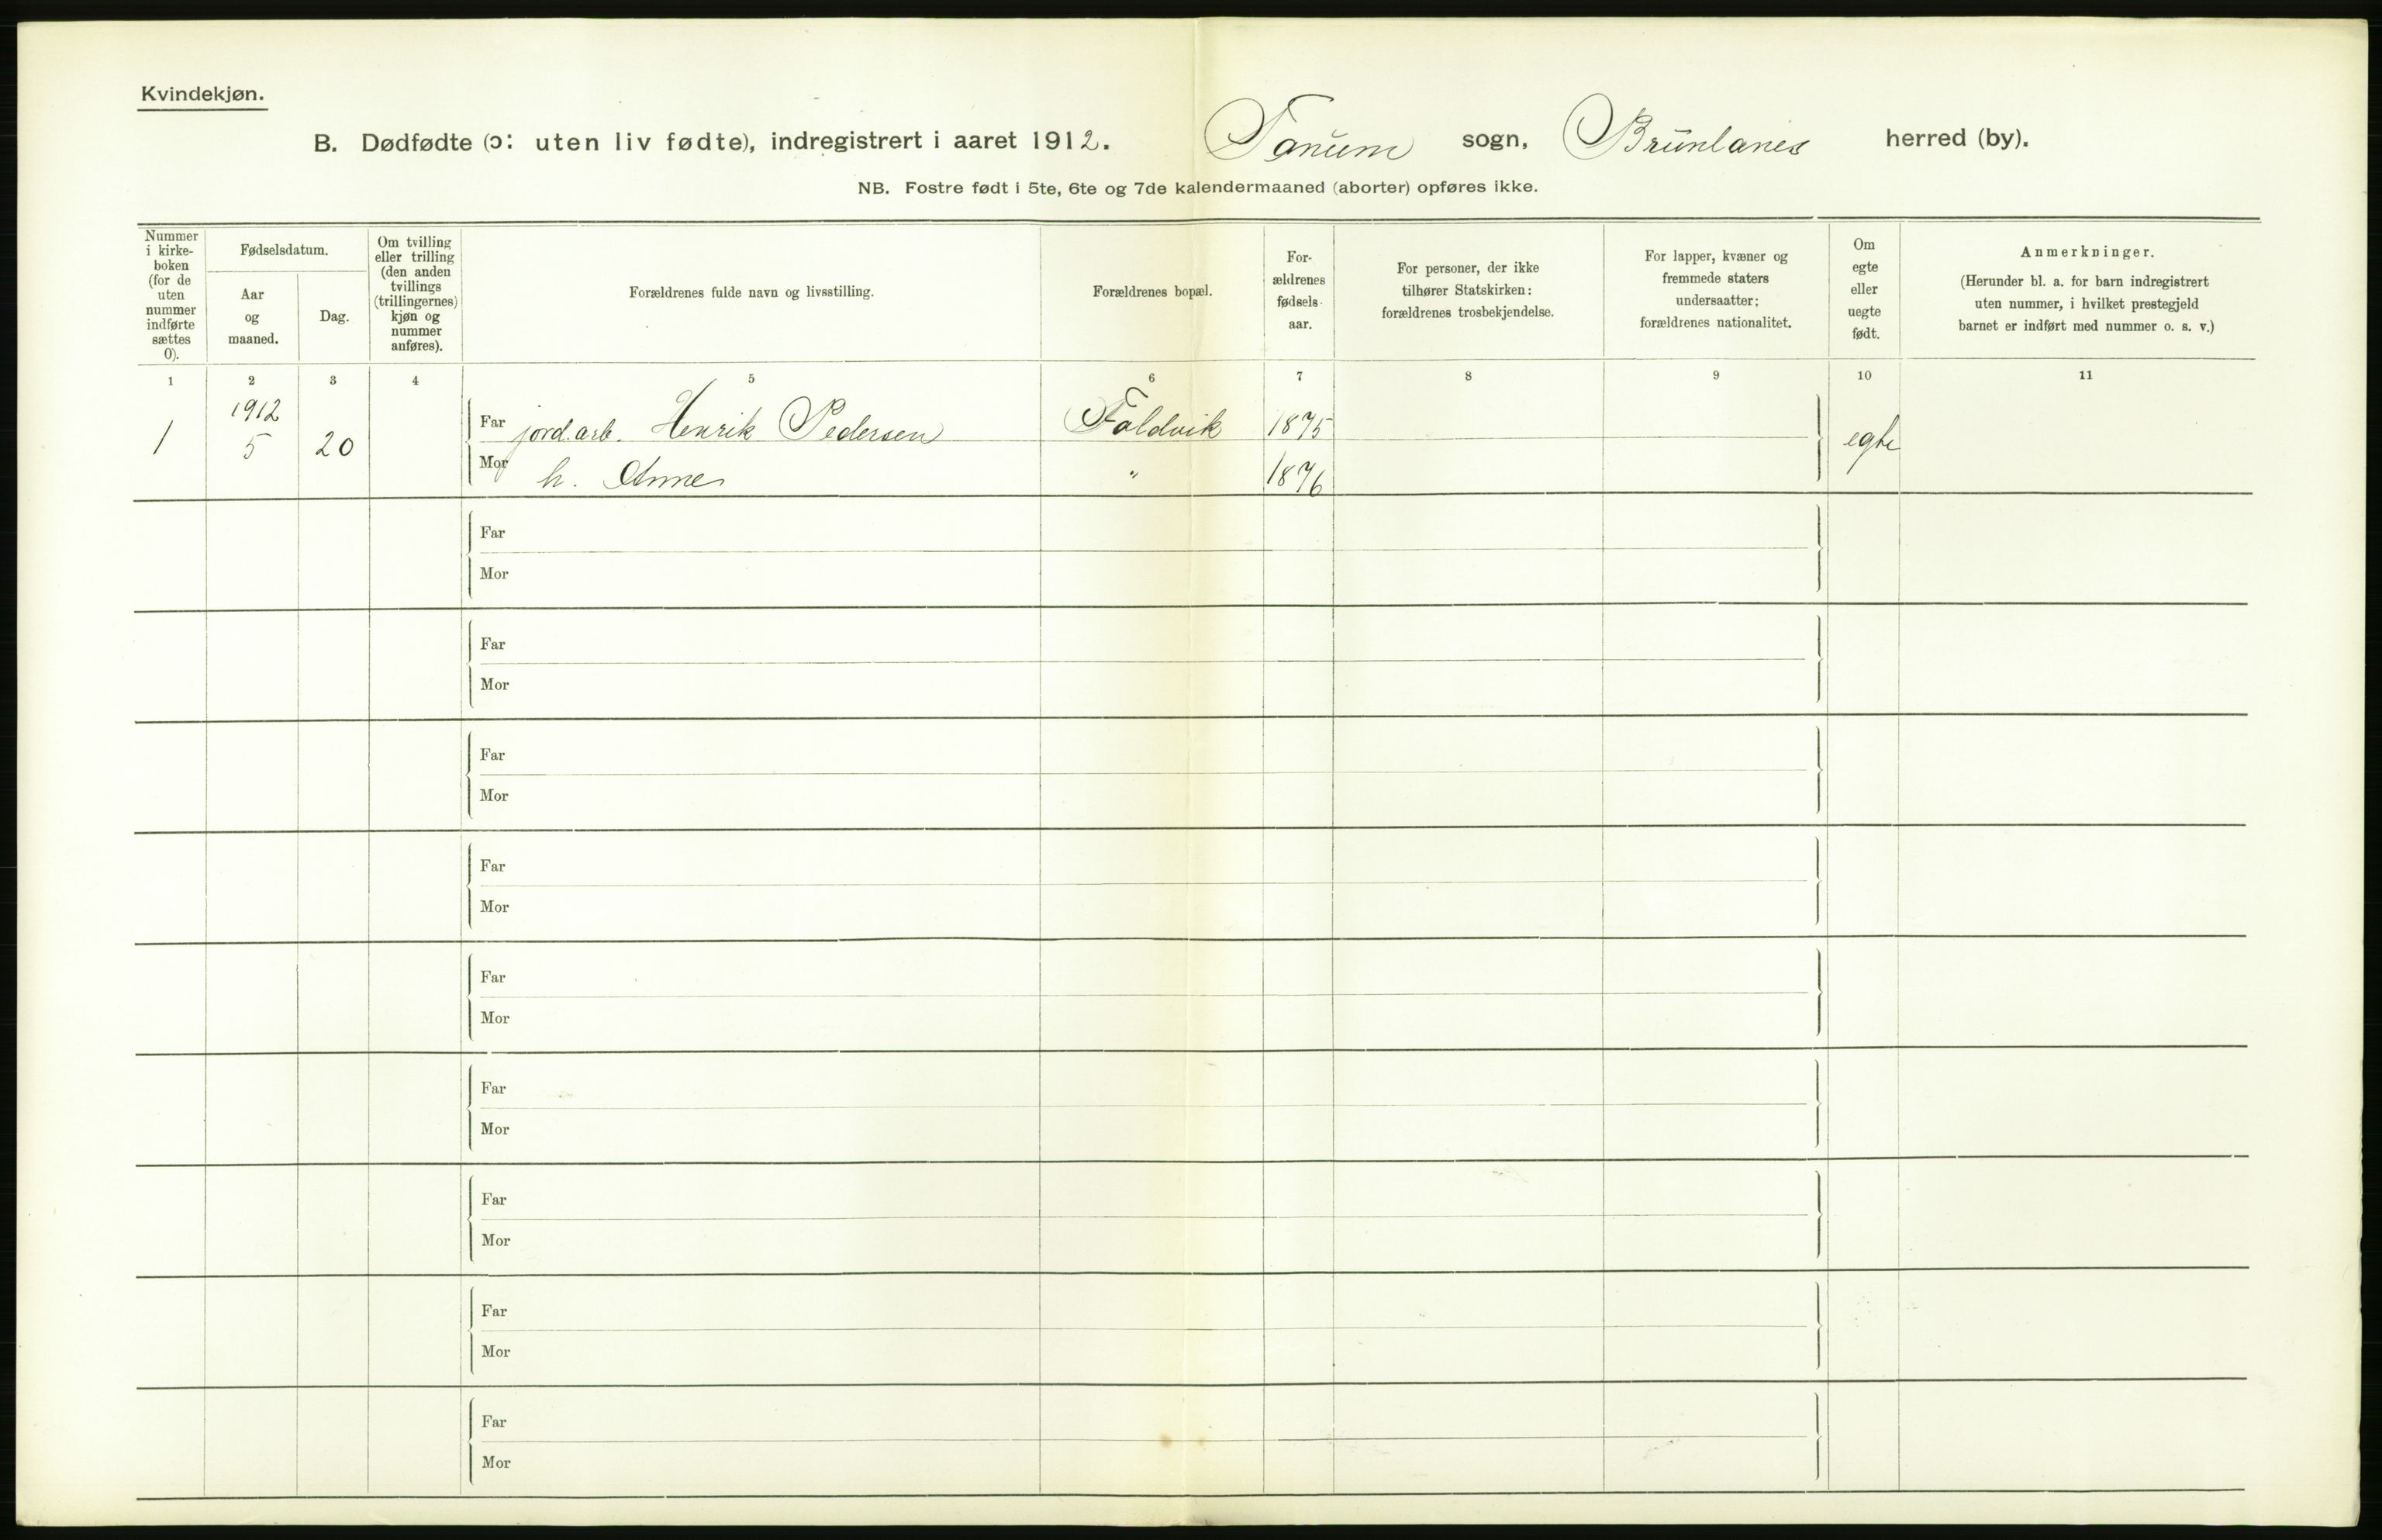 Kvindekjøn.
B. Dødfødte (ɔ: uten liv fødte), indregistrert i aaret 1912. Tanum sogn, Brunlanes herred (by).
NB. Fostre født i 5te, 6te og 7de kalendermaaned (aborter) opføres ikke.
Nummer
i kirke-
boken
(for de
uten
nummer
indførte
sættes
0).
Fødselsdatum.
Aar
og
maaned.
Dag.
Om tvilling
eller trilling
(den anden
tvillings
(trillingernes)
kjøn og
nummer
anføres).
Forældrenes fulde navn og livsstilling.
Forældrenes bopæl.
For-
ældrenes
fødsels-
aar.
For personer, der ikke
tilhører Statskirken:
forældrenes trosbekjendelse.
For lapper, kvæner og
fremmede staters
undersaatter;
forældrenes nationalitet.
Om
egte
eller
uegte
født.
Anmerkninger.
(Herunder bl. a. for barn indregistrert
uten nummer, i hvilket prestegjeld
barnet er indført med nummer o. s. v.)
1 2 3 4 5 6 7 8 9 10 11
1912
1 5 20
Far jord.arb. Henrik Pedersen Foldvik 1875 egte
Mor h. Anne " 1876
Far
Mor
Far
Mor
Far
Mor
Far
Mor
Far
Mor
Far
Mor
Far
Mor
Far
Mor
Far
Mor